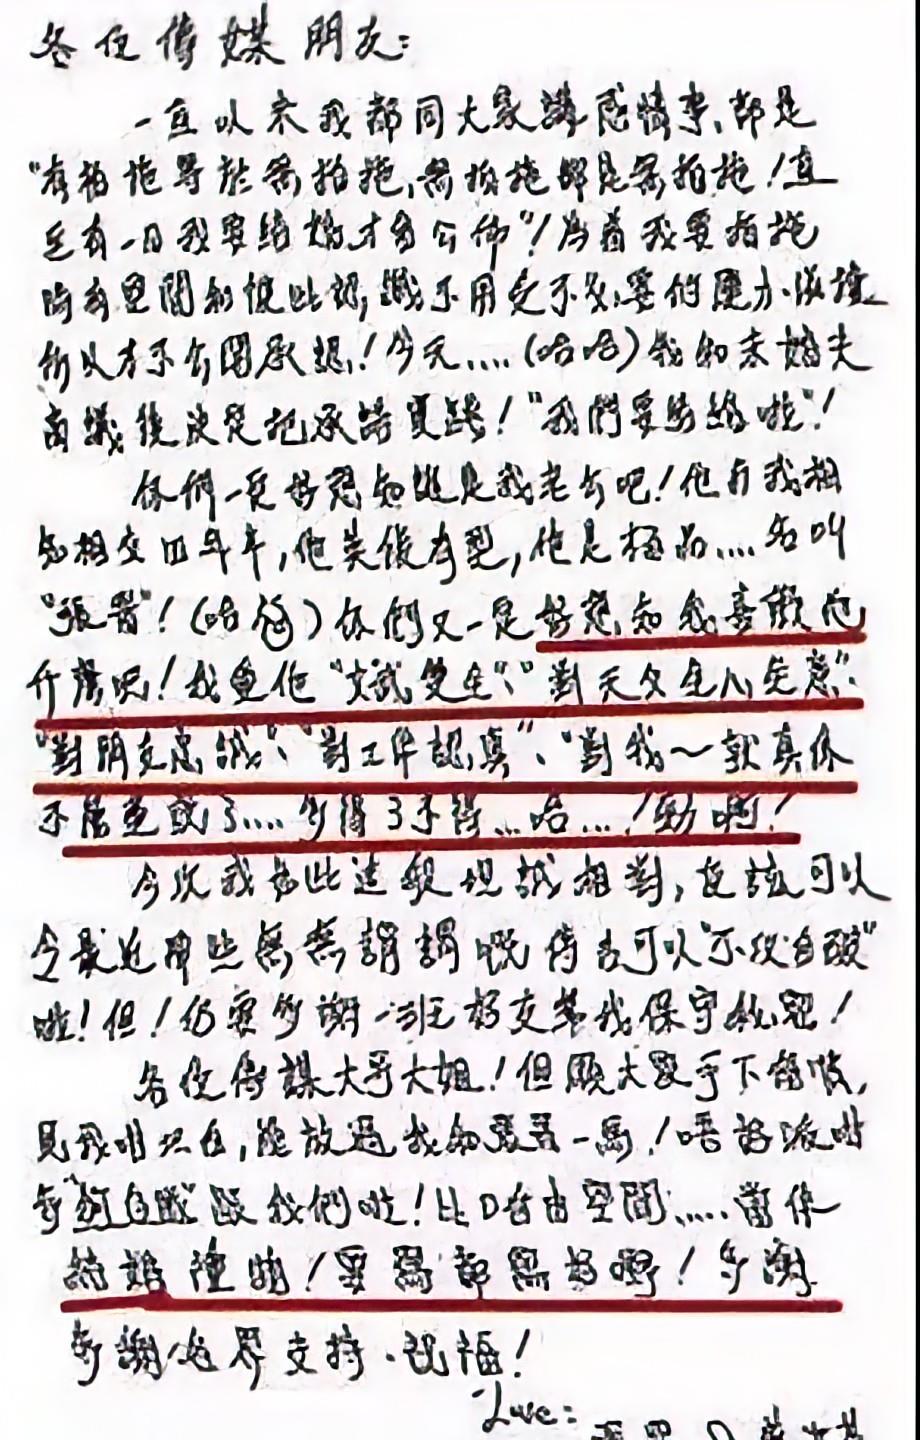 各位傳媒朋友:
一直以來我都同大家講感情事,都是
"有拍拖等於無拍拖,無拍拖即是無拍拖!直
至有一日我要結婚才會公佈"!為着我要拍拖
時有空間和彼此認識不用受不必要的壓力
所以才不公開承認!今天....(哈哈)我和未婚夫
商議後決定把承諾實踐!"我們要結婚啦"!
你們一定好想知誰是我老公吧!他與我相
知相交四年半,他英俊有型,他是極品....名叫
"張晉"!(哈哈)你們又一定好想知我喜歡他
什麼呢!我重他"文武雙全"、"對天父全心全意"、
"對朋友忠誠"、"對工作認真"、"對我~就真係
不能重或了....多得了不得...哈...!勁啊!
今次我如此這般坦誠相對,應該可以
令最近那些無無謂謂嘅傳言可以"不攻自破"
啦!但!仍要多謝一班好友幫我保守秘密!
各位傳媒大哥大姐!但願大家手下留情,
見我咁坦白,能放過我和家人一馬!唔該派咁
多"狗自隊"跟我們啦!比D自由空間.....當作
結婚禮物!要寫都寫好嘢!多謝
多謝各界支持、祝福!
Love: